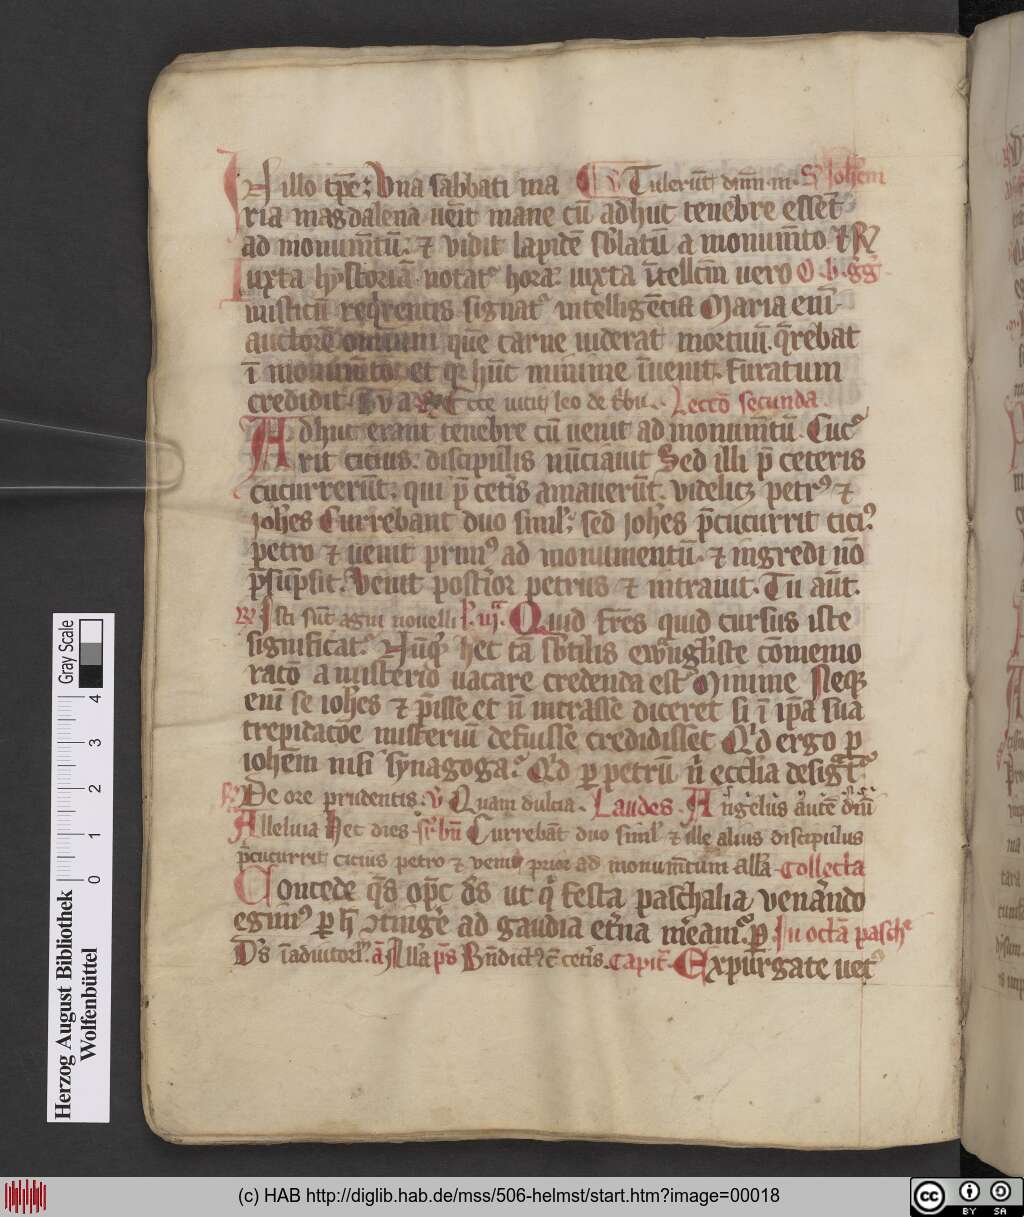 N illo tp̄e: Vna sabbati ma Tulerūt dn̄m m. S Joh̄em
ria magdalena uēit mane cū adhuc tenebre essēt
ad monum̄tū. ⁊ vidit lapidē sb̾latū a monum̄to ⁊ R̾
Iuxta hystoriā notatᷣ hora: iuxta ītellc̄m uero O. b. gg̾
misticū req̾rentis signatᷣ intelligēcia Maria enī
auctorē omnium quē carne uiderat mortuū. q̄rebat
ī monum̄to. et q hūc minime īuenit. furatum
credidit. Ecce uicit leo de t̾bu. Lecc̄o secunda
Adhuc erant tenebre cū uenit ad monum̄tū. Cucᷣ
rit citius. discipulis nūciauit Sed illi p̄ ceteris
cucurrerūt: qui p̄ cet̾is amauerūt. videlicꝫ petrꝰ ⁊
joh̄es Currebant duo simlᷣ: sed joh̄es p̄cucurrit citiꝰ
petro ⁊ uenit primꝰ ad monumentū. ⁊ ingredi nō
p̄sūpsit. Venit post̾ior petrus ⁊ intrauit. Tu aūt.
R̾ Isti sūt agni nouelli L̾. iij. Quid fr̄es quid cursus iste
significatᷣ Nūq̾ hec tā sb̾tilis ewāglīste cōmemo
racō a misterio uacare credenda estᷣ Minime Neqꝫ
enī se ioh̄es ⁊ p̄isse et n̄ intrasse diceret si ī ip̄a sua
trepidacōe misteriū defuisse credidisset Q̾d ergo ꝑ
ioh̄em nisi synagogaᷣ Q̾d ꝑ petrū n̾ eccl̄ia desig̾tᷣ
R̾ De ore prudentis. v̾ Quam dulcia. Laudes. Angelus autē dn̄i
Alleluia Hec dies sr̾ bn̄ Currebāt duo simlᷣ ⁊ ille alius discipulus
p̄cucurrit citius petro ⁊ venit prior ad monum̄tum all̄a Collecta
Concede q̄s op̄c ds̄ ut q̾ festa paschalia venādo
egimꝰ ꝑ h̄ ꝯtinge̾ ad gaudia et̾na m̾eamꝰ. ꝑ In octā paschᵉ
Ds̄ ī adiutorꝭ. ā All̄a ps̄ Bn̄dictꝰ ⁊ cet̾is. Capit̾. Expurgate uetꝰ
Gray Scale
4
3
2
1
0
Herzog August Bibliothek
Wolfenbüttel
(c) HAB http://diglib.hab.de/mss/506-helmst/start.htm?image=00018
cc BY SA